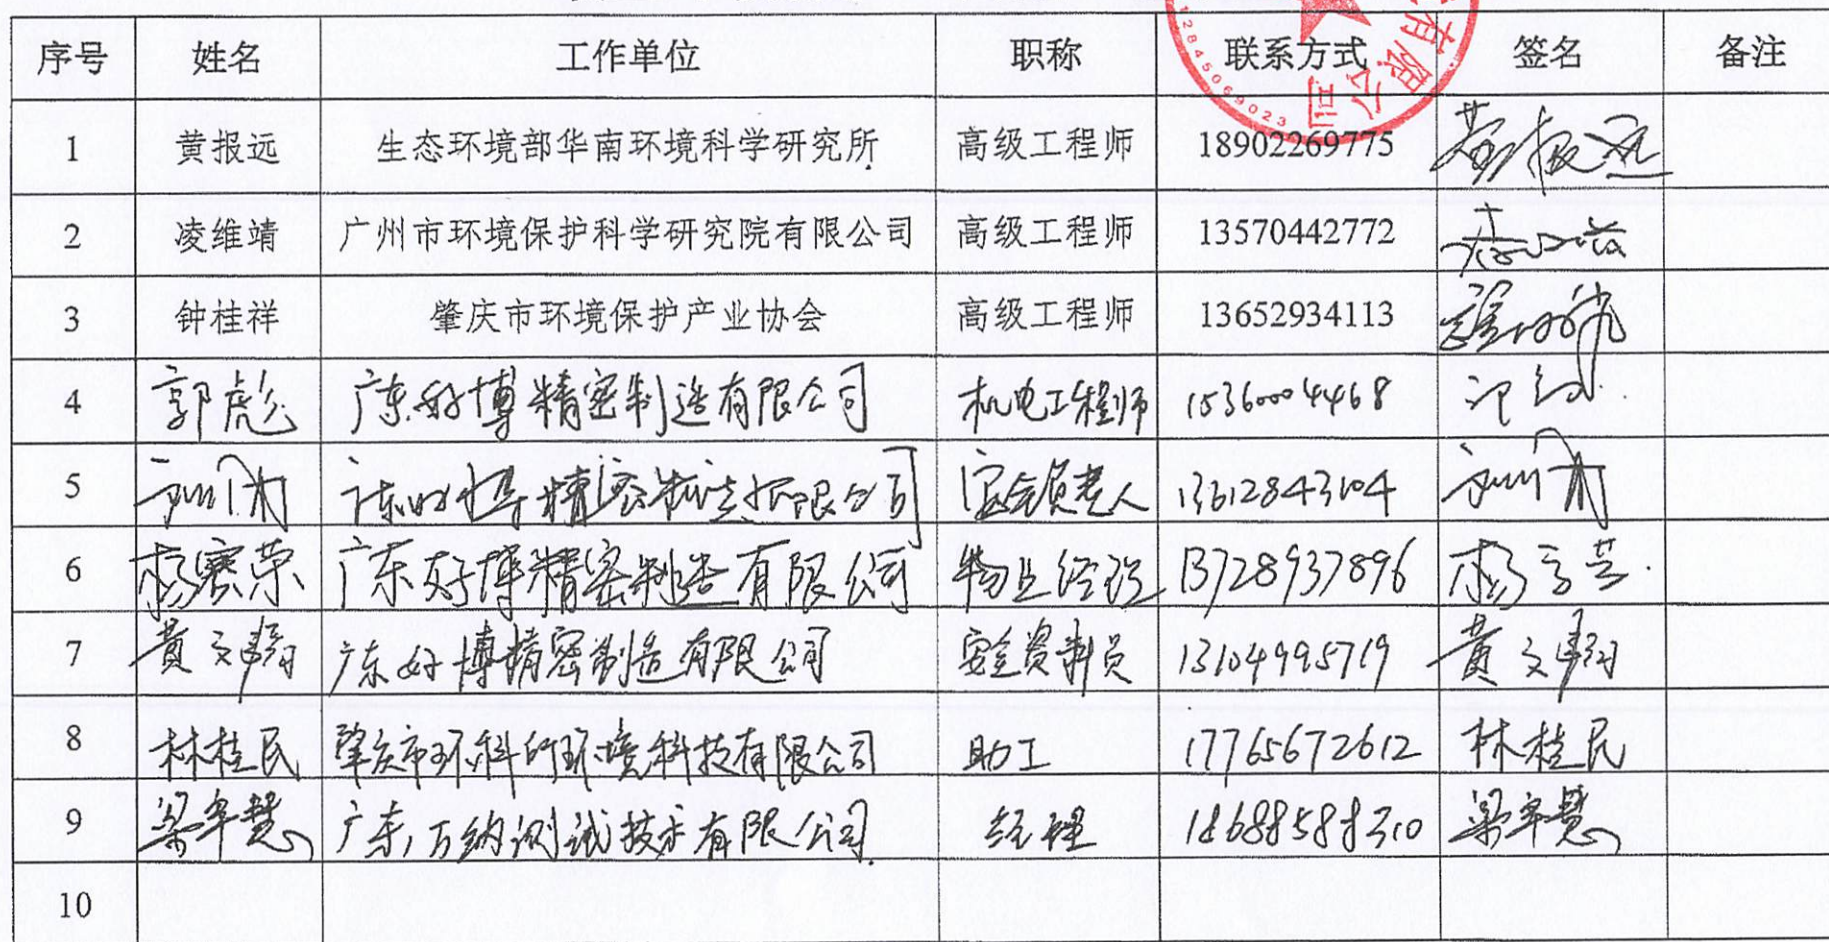 序号 姓名 工作单位 职称 联系方式 签名 备注
有限公司
12845069023
1 黄报远 生态环境部华南环境科学研究所 高级工程师 18902269775 黄报远
2 凌维靖 广州市环境保护科学研究院有限公司 高级工程师 13570442772
3 钟桂祥 肇庆市环境保护产业协会 高级工程师 13652934113
4 郭彪 广东好博精密制造有限公司 机电工程师 15360004468
5 广东好博精密制造有限公司 安全负责人 13612843104
6 杨赛荣 广东好博精密制造有限公司 物业经理 13728937896
7 黄文 广东好博精密制造有限公司 安全资料员 13104995719 黄文
8 林桂民 肇庆市环科所环境科技有限公司 助工 17765672612 林桂民
9 梁卓慧 广东万纳测试技术有限公司 经理 18688588310 梁卓慧
10